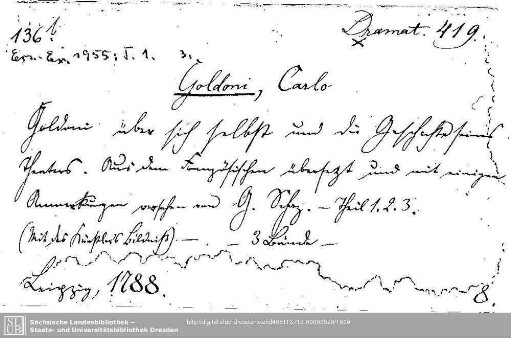 136t Dramat. 419.
Ers.-Ex. 1955: I. 1. 3.
Goldoni, Carlo
Goldoni über sich selbst und die Geschichte seines
Theaters. Aus dem Französischen übersetzt und mit einigen
Anmerkungen versehen von G. Schaz. – Theil 1. 2. 3.
(Mit des Künstlers Bildniß). – – 3 Bände –
Leipzig, 1788. 8.
SLUB
Sächsische Landesbibliothek –
Staats- und Universitätsbibliothek Dresden